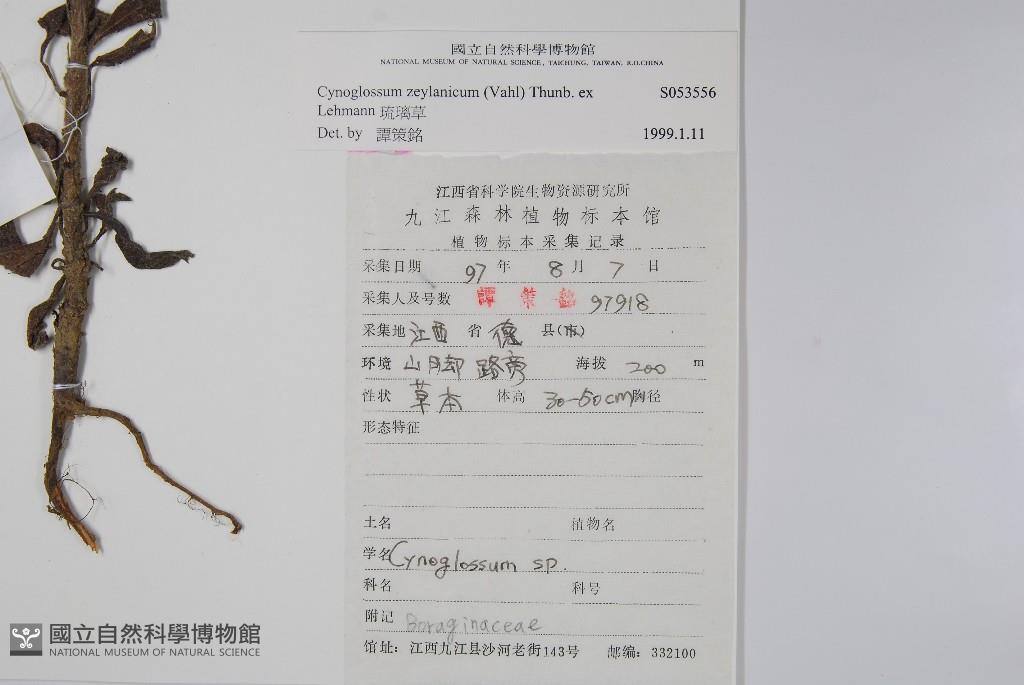 國立自然科學博物館
NATIONAL MUSEUM OF NATURAL SCIENCE, TAICHUNG, TAIWAN, R.O.CHINA
Cynoglossum zeylanicum (Vahl) Thunb. ex S053556
Lehmann 琉璃草
Det. by 譚策銘 1999.1.11
江西省科学院生物资源研究所
九江森林植物标本馆
植物标本采集记录
采集日期 97 年 8 月 7 日
采集人及号数 譚策銘 97918
采集地 江西 省 德 县(市)
环境 山脚路旁 海拔 200 m
性状 草本 体高 30-50cm 胸径
形态特征
土名 植物名
学名 Cynoglossum sp.
科名 科号
附记 Boraginaceae
馆址：江西九江县沙河老街143号 邮编：332100
國立自然科學博物館
NATIONAL MUSEUM OF NATURAL SCIENCE